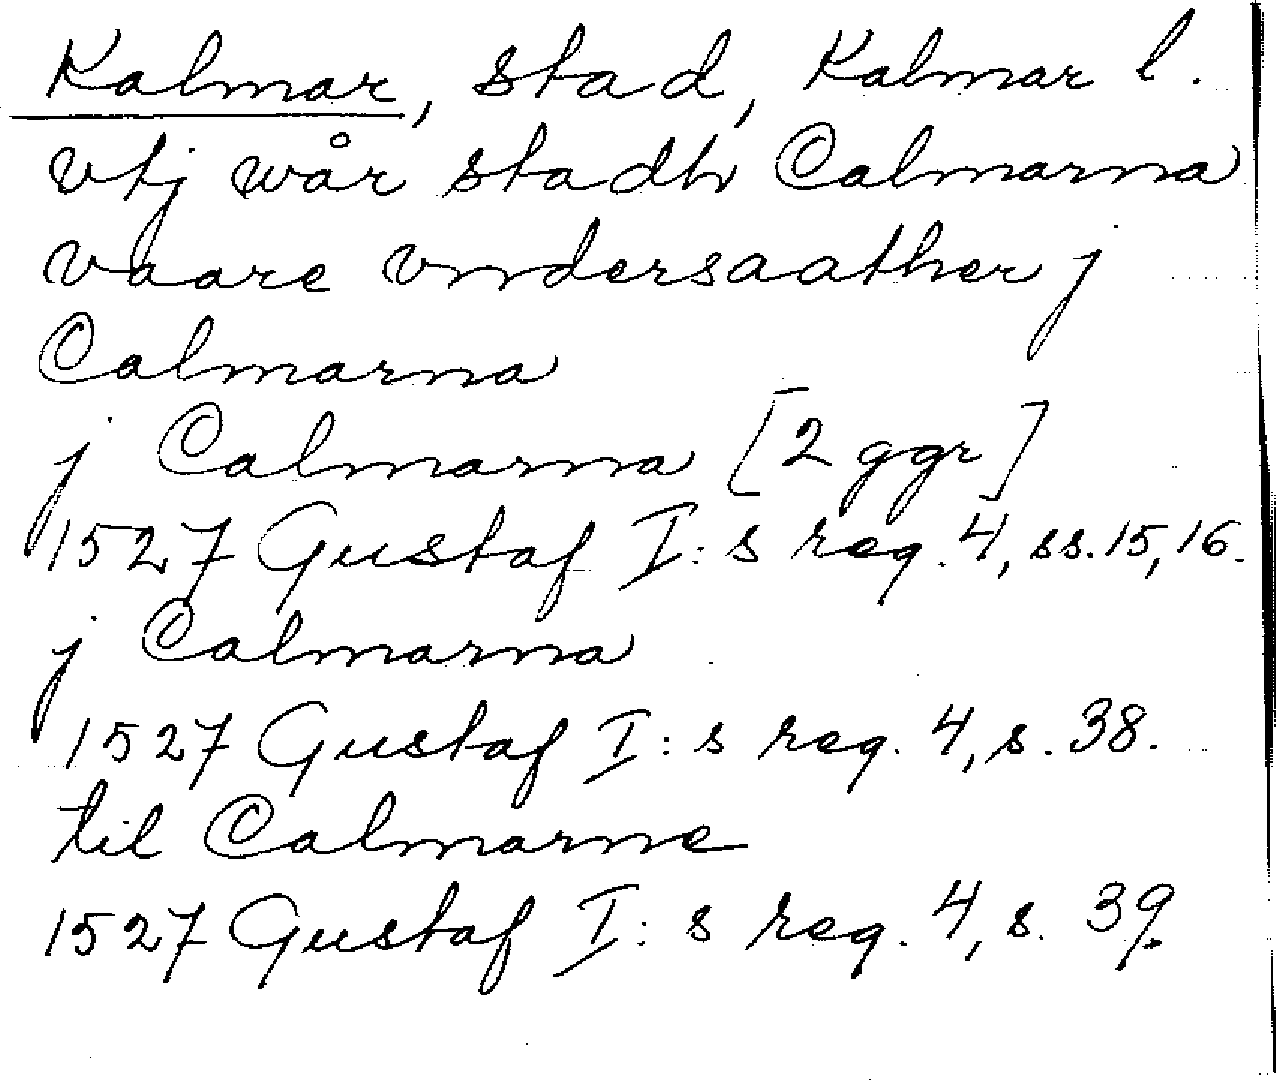 Kalmar, stad, Kalmar l.
vtj wår stadh Calmarna
vaare vndersaather j
Calmarna
j Calmarna [2 ggr]
1527 Gustaf I:s reg. 4, ss. 15, 16.
j Calmarna
1527 Gustaf I:s reg. 4, s. 38.
til Calmarne
1527 Gustaf I:s reg. 4, s. 39.